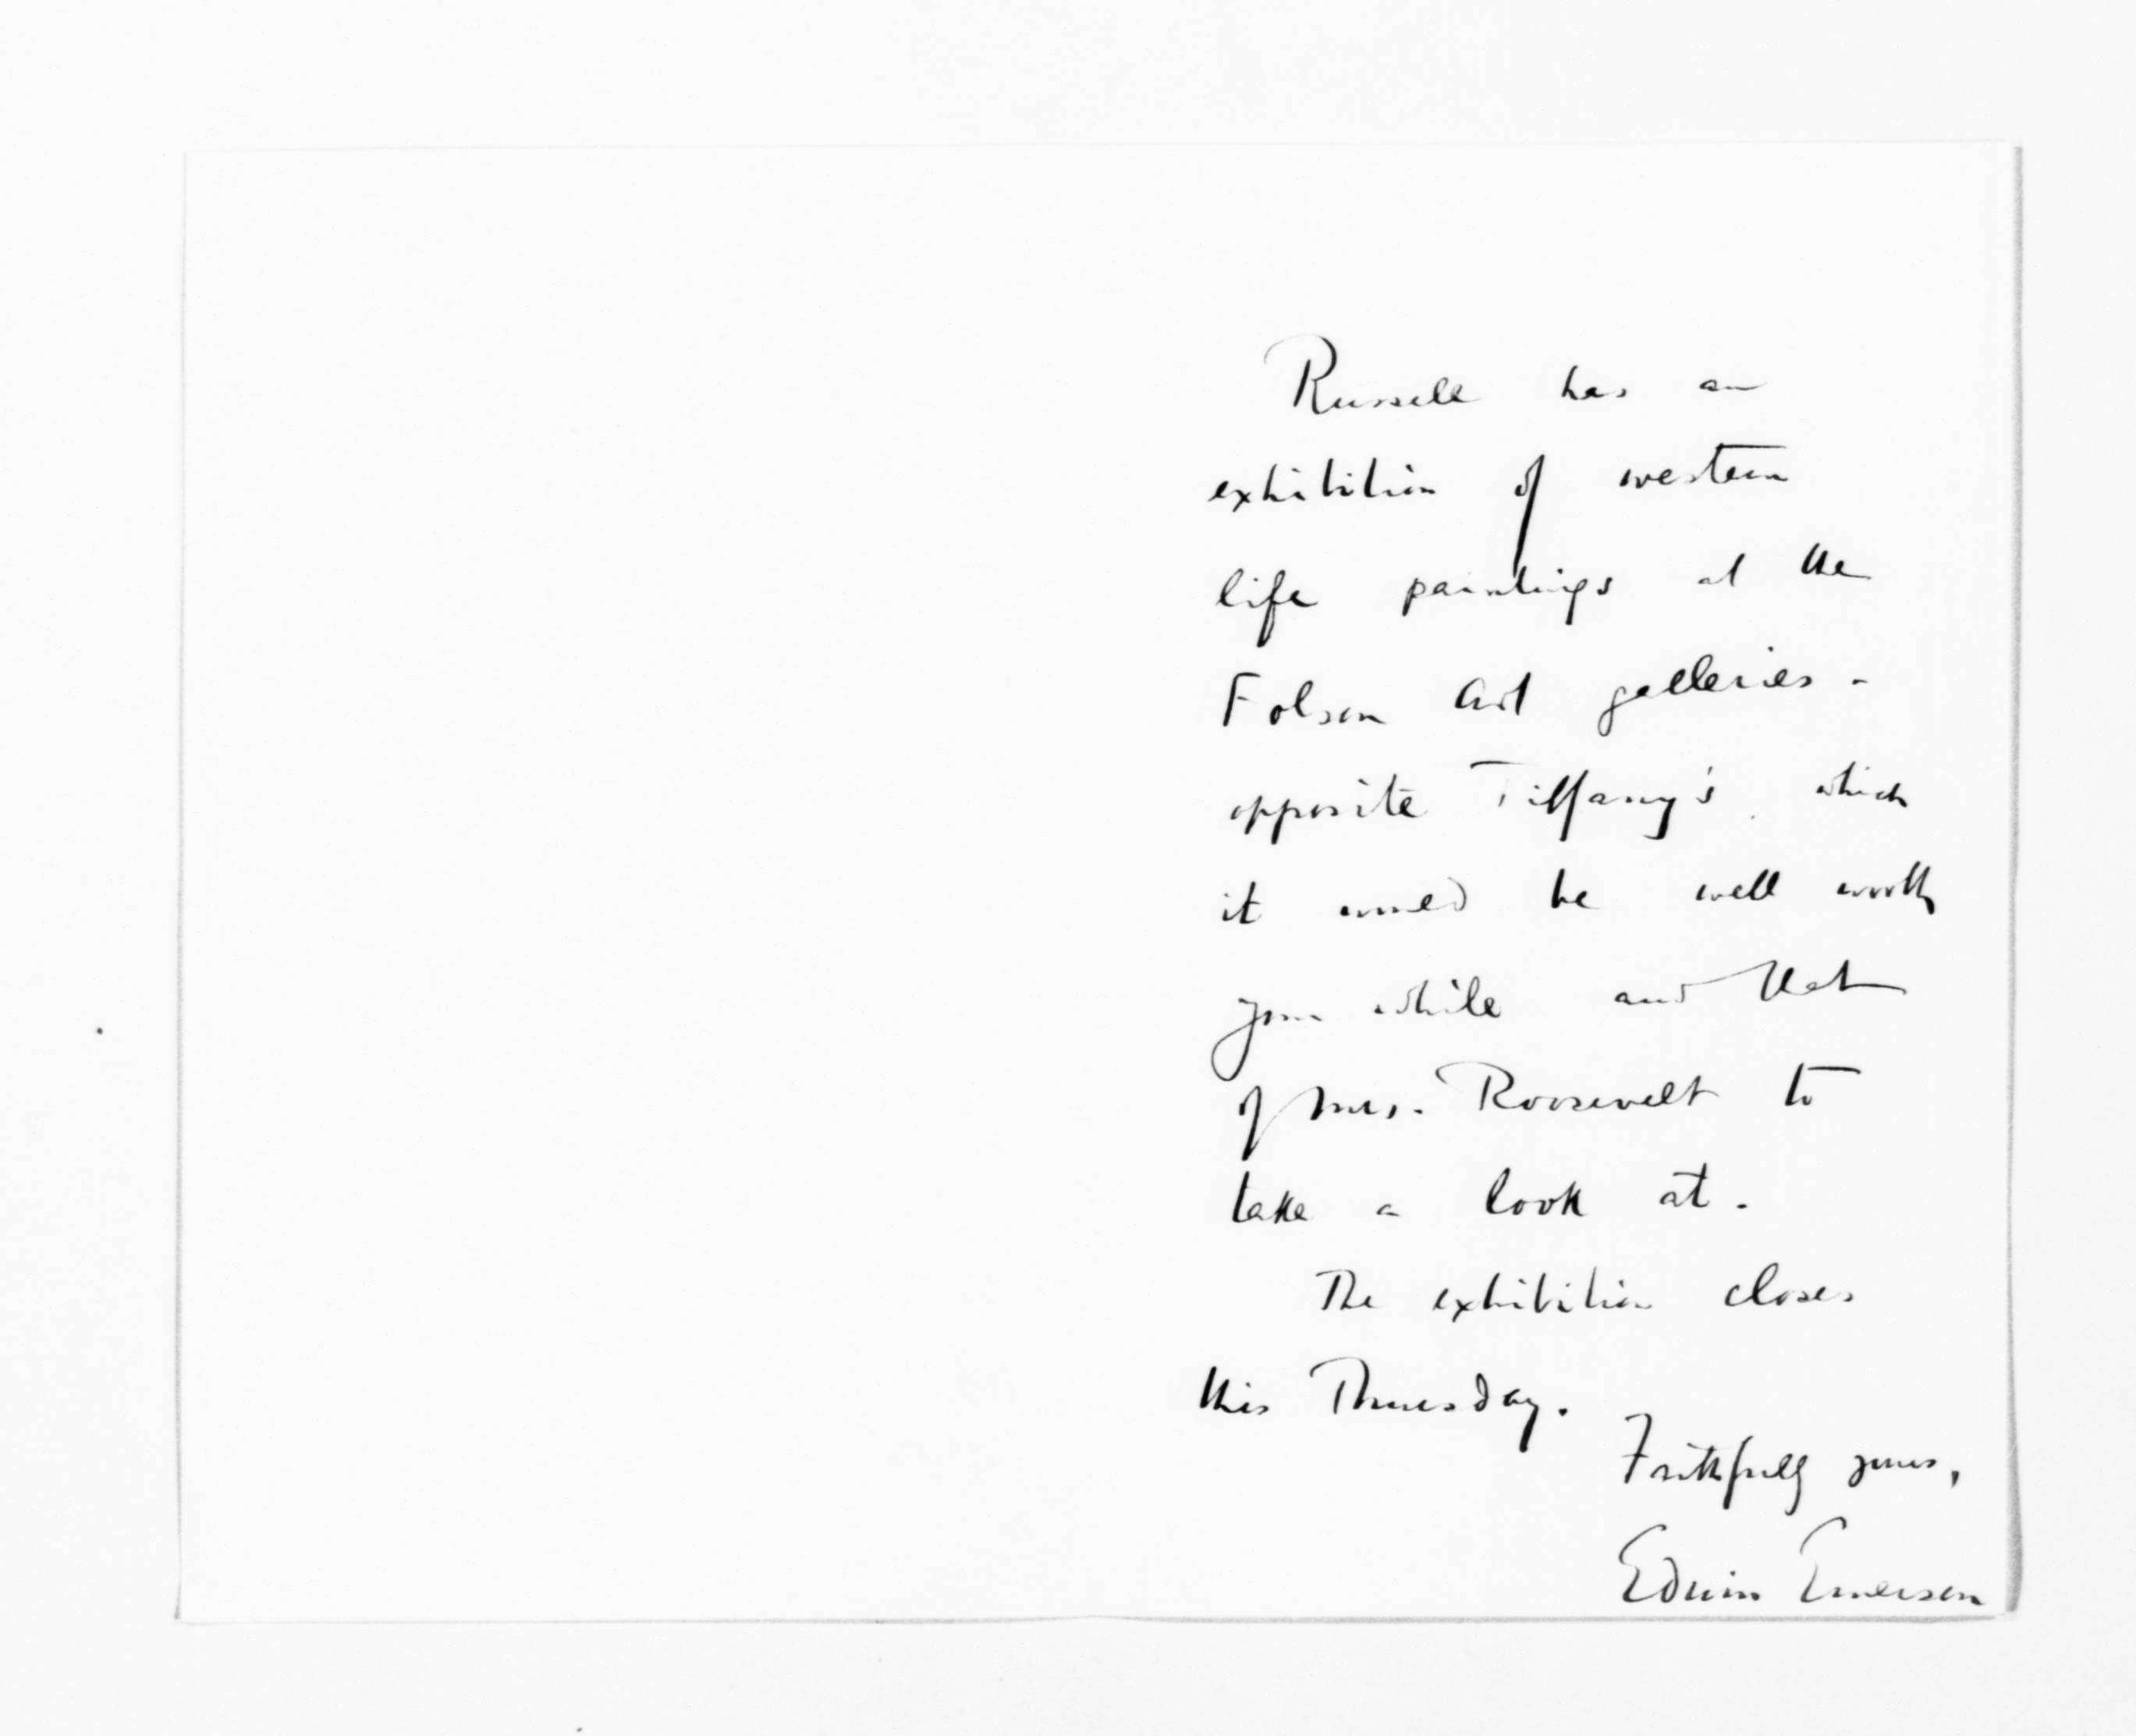 Russell has an
exhibition of western
life paintings at the
Folsom Art galleries -
opposite Tiffany's which
it would be well worth
your while and that
of Mrs. Roosevelt to
take a look at.
The exhibition closes
this Thursday.
Faithfully yours,
Edwin Emerson